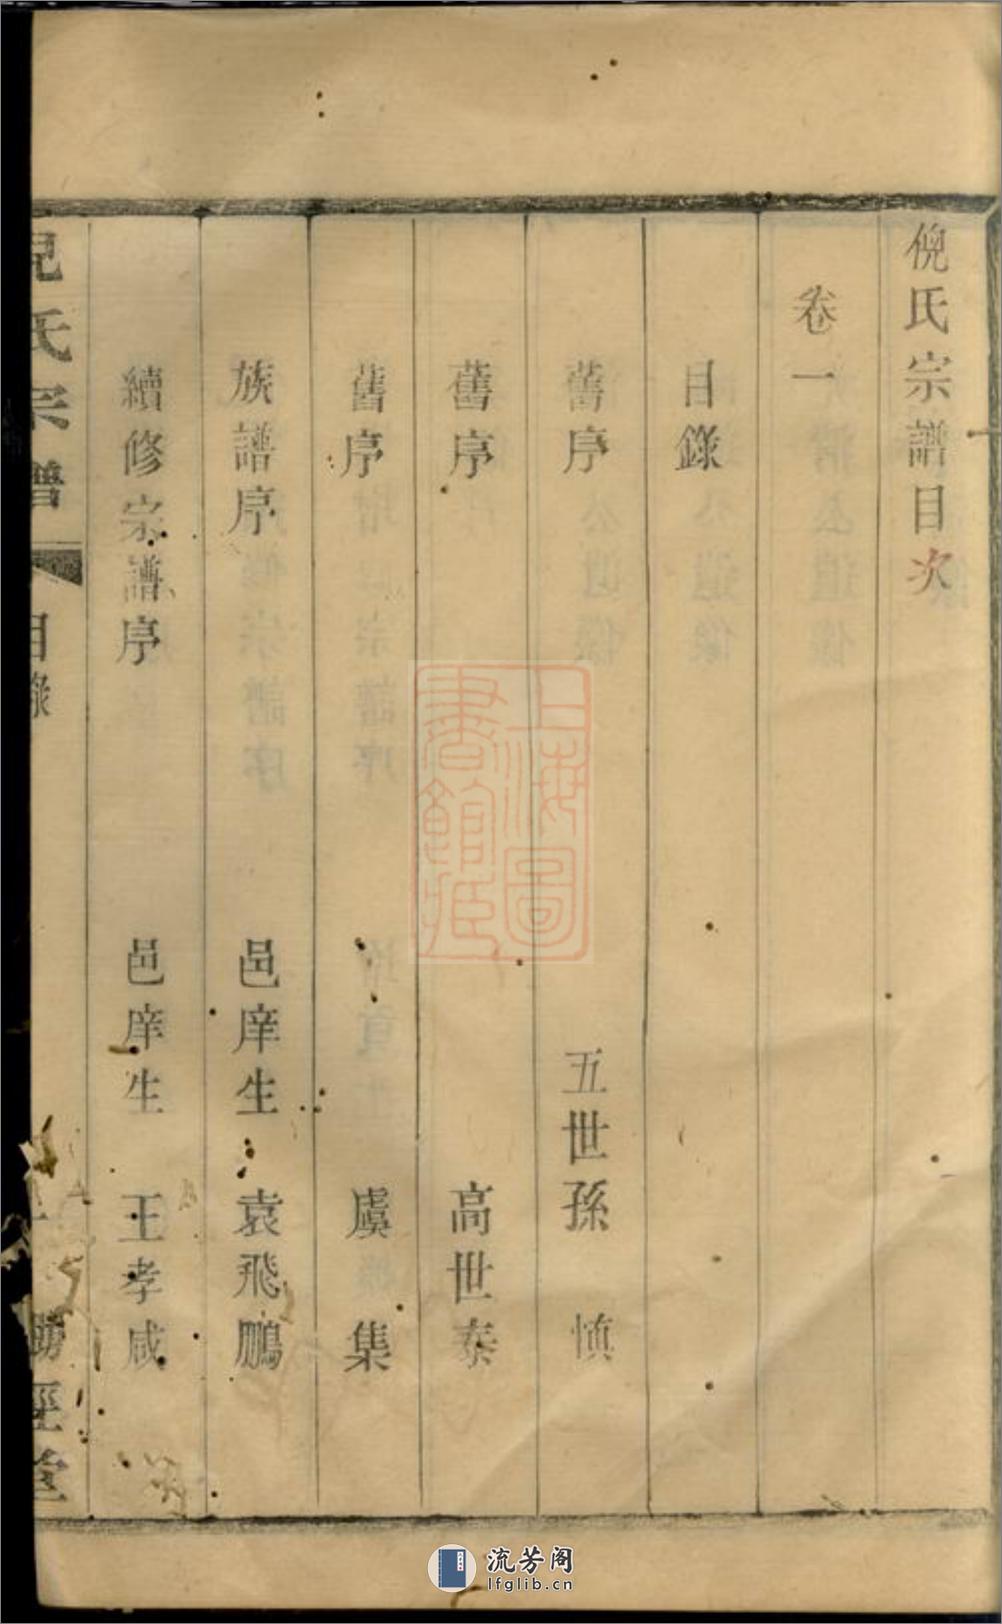 倪氏宗譜目次
卷一
目錄
舊序 五世孫 慎
舊序 高世泰
舊序 虞 集
族譜序 邑庠生 袁飛鵬
續修宗譜序 邑庠生 王孝咸
倪氏宗譜 目錄 一 經堂
上海圖書館藏
流芳阁
lfglib.cn